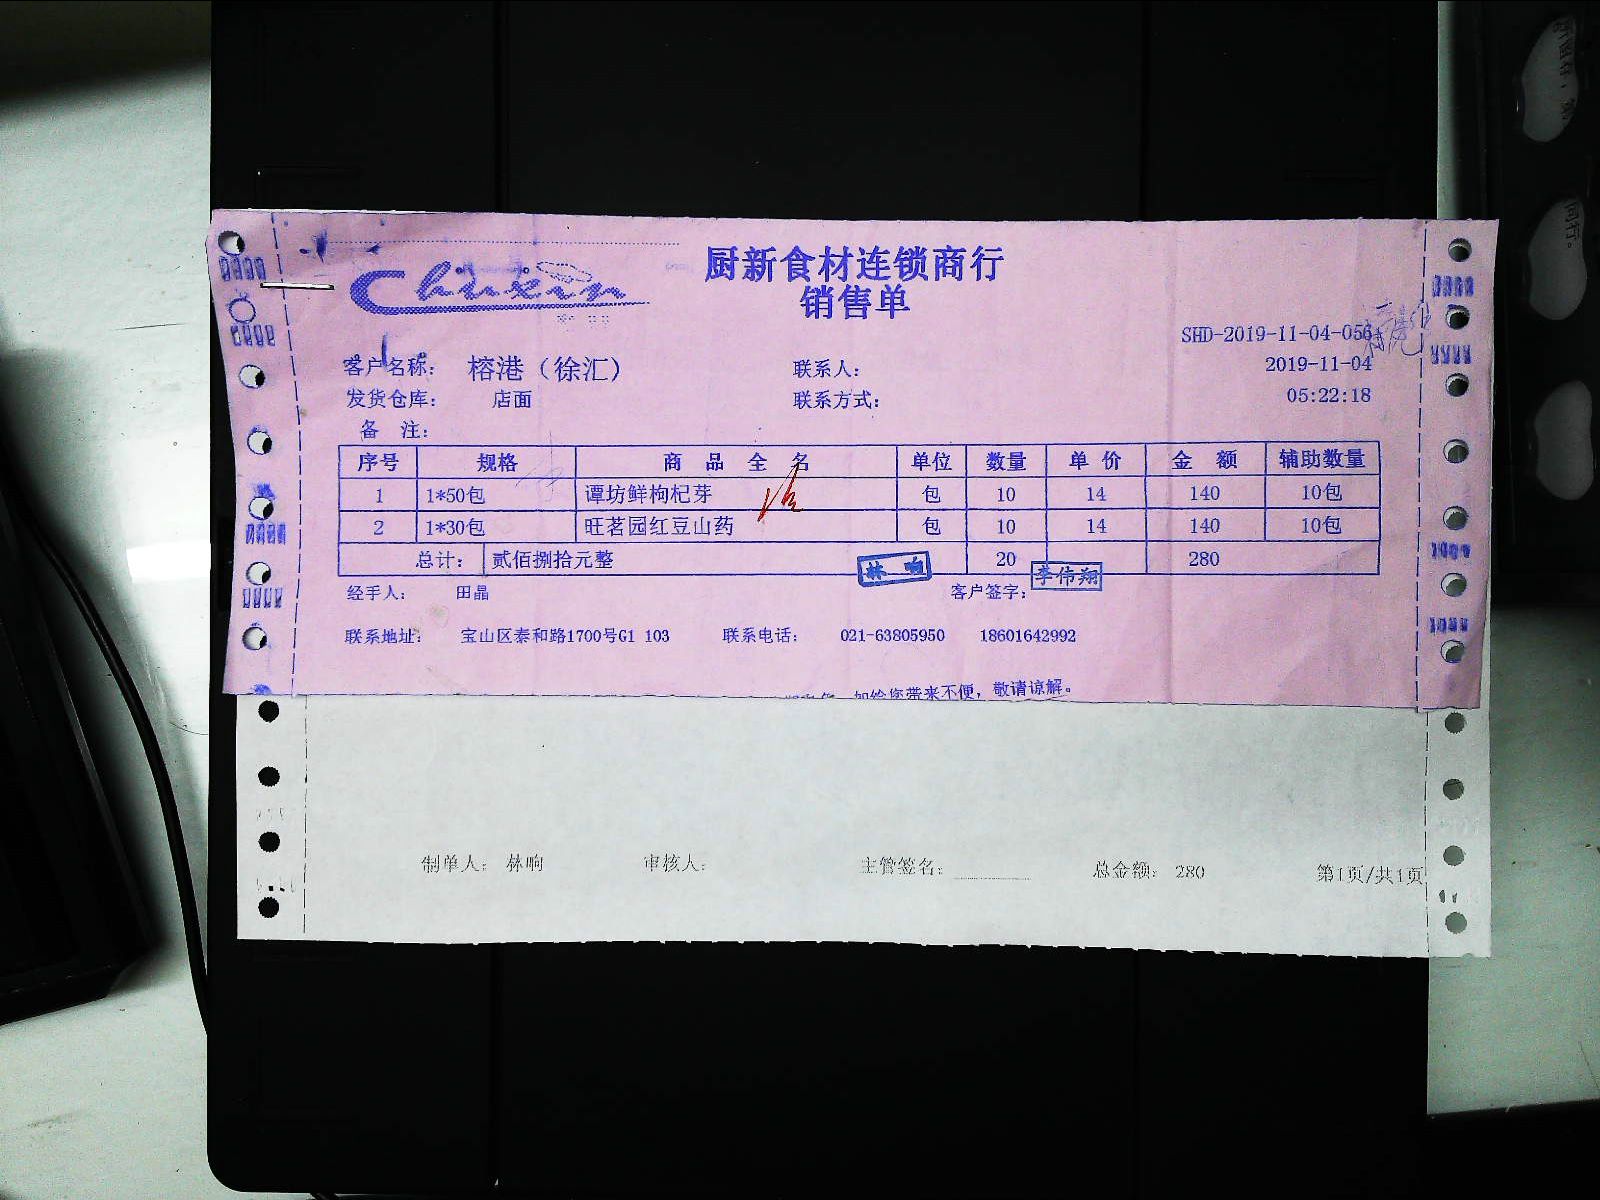 Chuxin
厨新食材连锁商行
销售单
SHD-2019-11-04-056
客户名称: 榕港（徐汇） 联系人: 2019-11-04
发货仓库: 店面 联系方式: 05:22:18
备 注:
序号 规格 商 品 全 名 单位 数量 单 价 金 额 辅助数量
1 1*50包 谭坊鲜枸杞芽 包 10 14 140 10包
2 1*30包 旺茗园红豆山药 包 10 14 140 10包
总计: 贰佰捌拾元整 20 280
林响
李伟翔
经手人: 田晶 客户签字:
联系地址: 宝山区泰和路1700号G1 103 联系电话: 021-63805950 18601642992
如给您带来不便，敬请谅解。
制单人: 林响 审核人: 主管签名: 总金额: 280 第1页/共1页